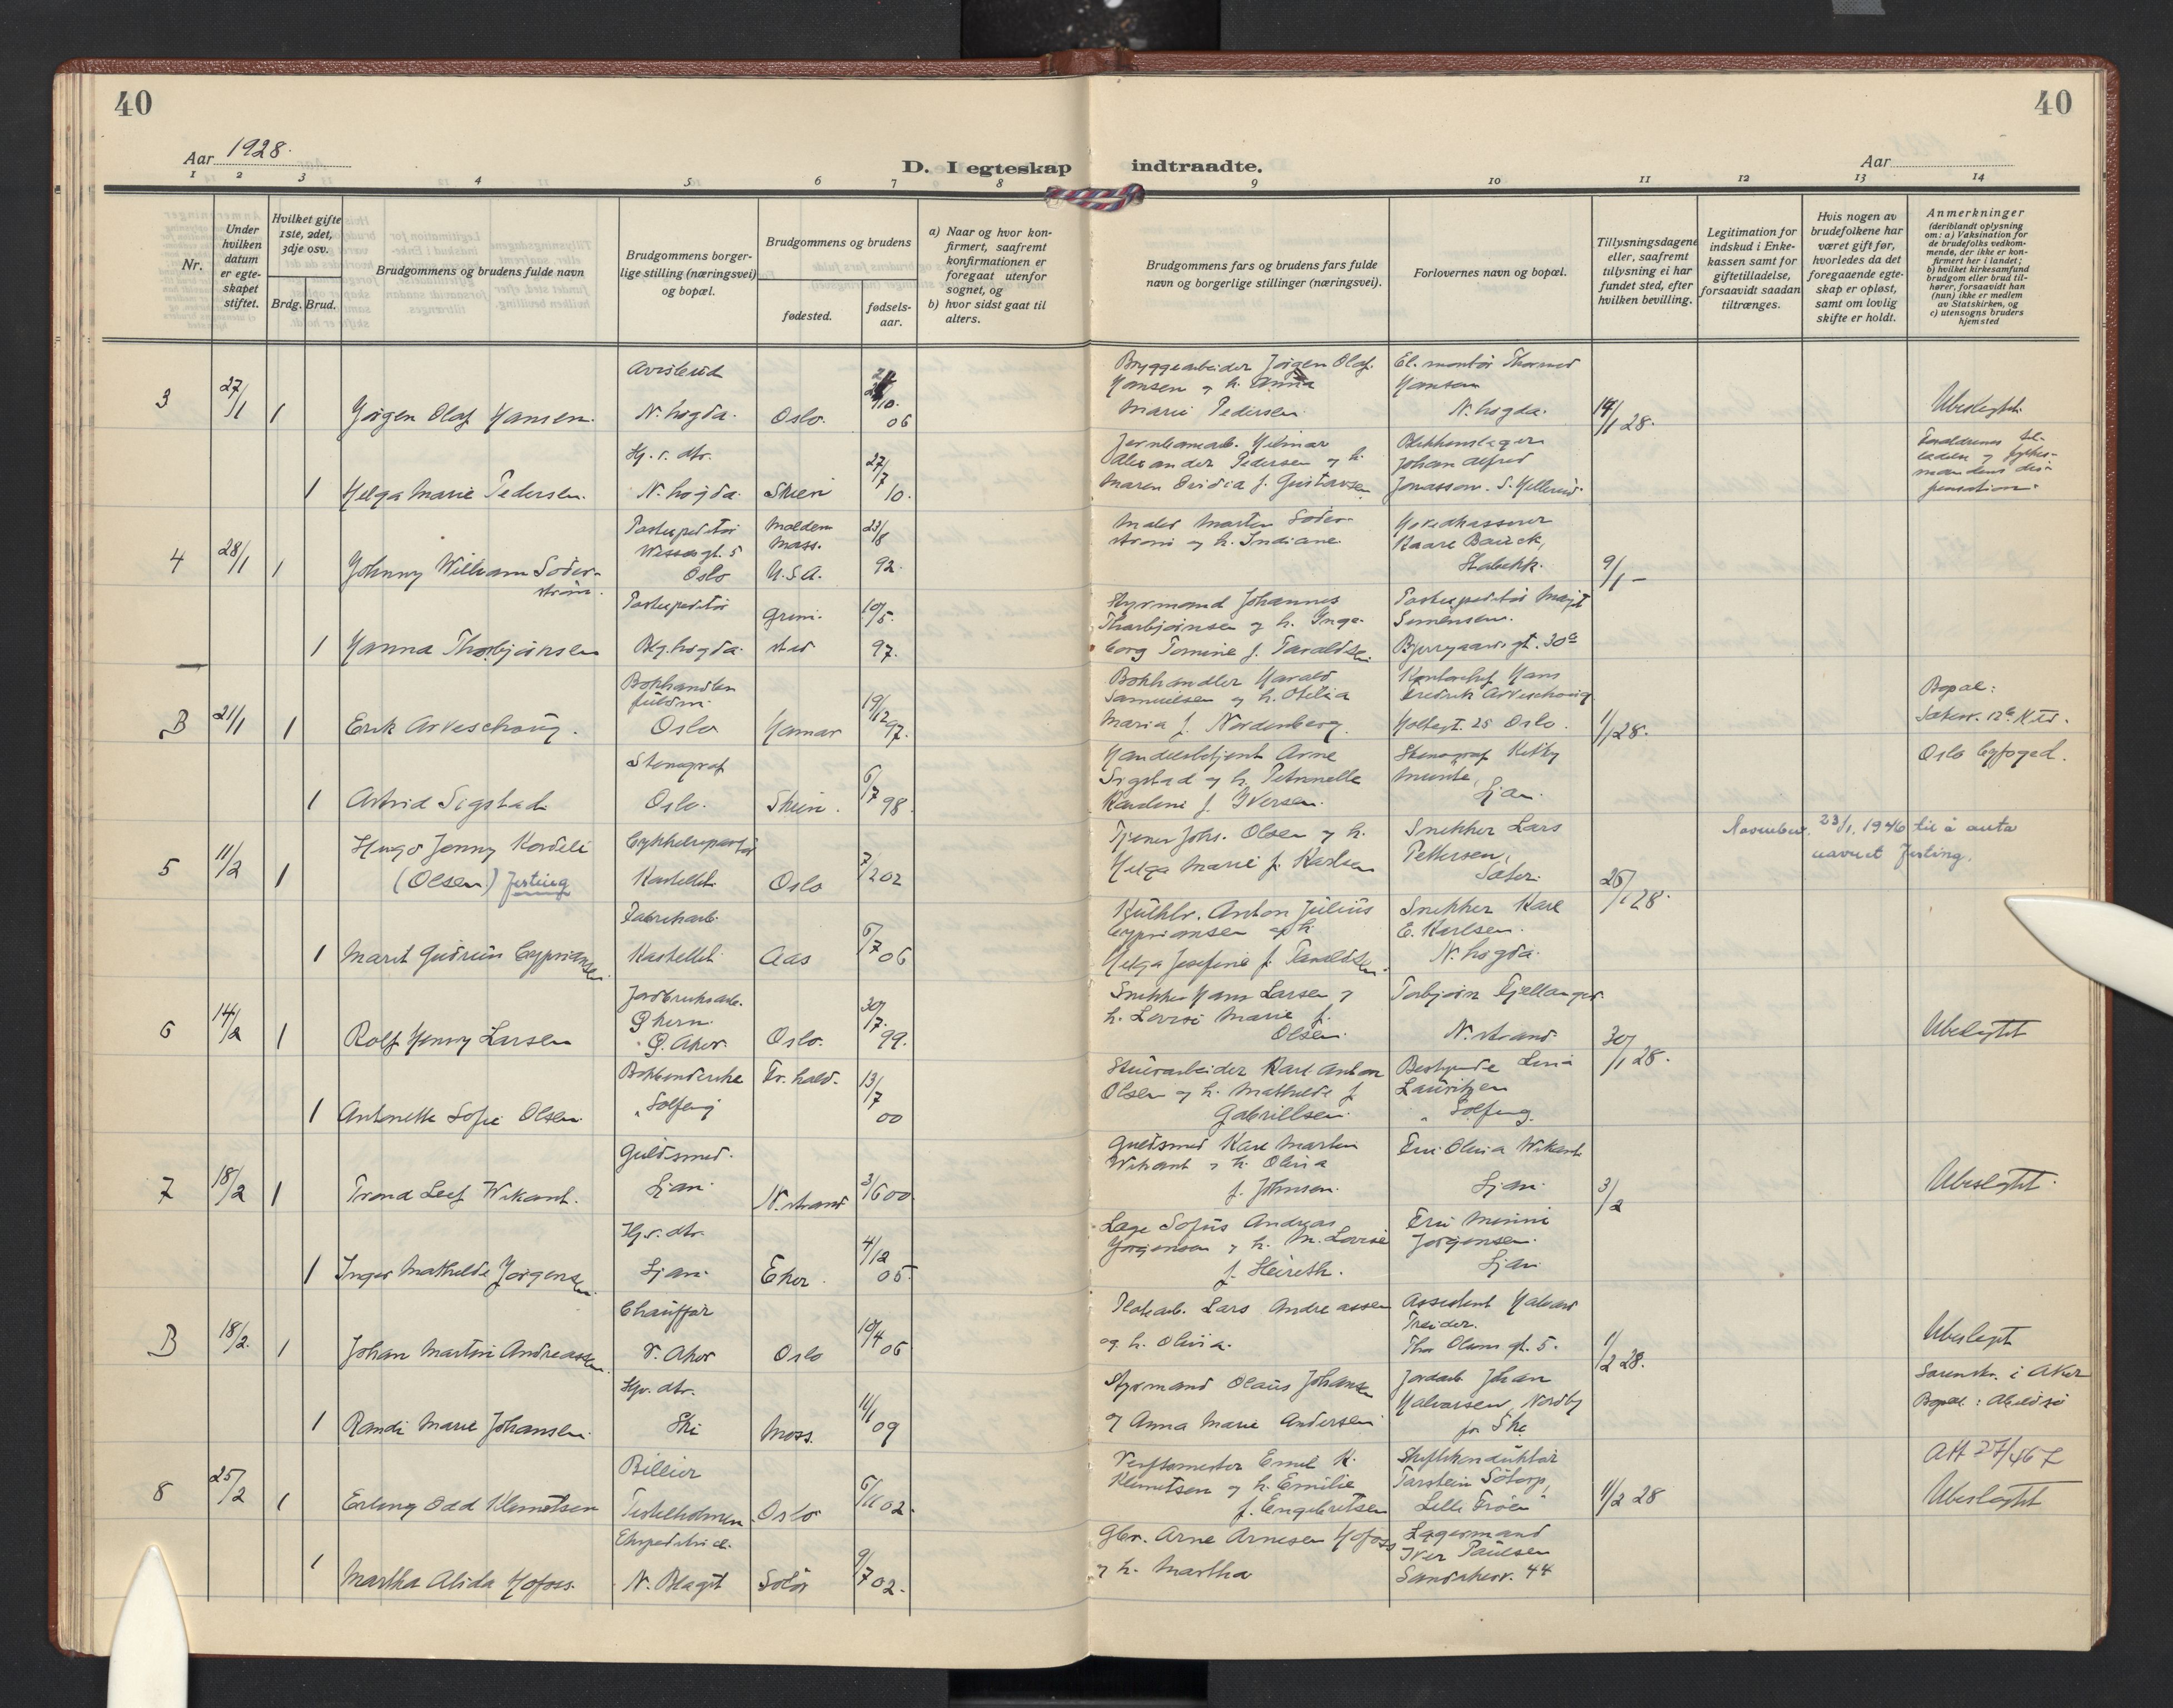 40
40
Aar 1928.
D. I egteskap indtraadte.
Aar
1 2 3 4 5 6 7 8 9 10 11 12 13 14
Nr.
Under hvilken datum er egteskapet stiftet.
Hvilket gifte 1ste, 2det, 3dje osv.
Brdg. Brud.
Brudgommens og brudens fulde navn
Brudgommens borgerlige stilling (næringsvei) og bopæl.
Brudgommens og brudens
fødested.
fødselsaar.
a) Naar og hvor konfirmert, saafremt konfirmationen er foregaat utenfor sognet, og
b) hvor sidst gaat til alters.
Brudgommens fars og brudens fars fulde navn og borgerlige stillinger (næringsvei).
Forlovernes navn og bopæl.
Tillysningsdagene eller, saafremt tillysning ei har fundet sted, efter hvilken bevilling.
Legitimation for indskud i Enkekassen samt for giftetilladelse, forsaavidt saadan tiltrænges.
Hvis nogen av brudefolkene har været gift før, hvorledes da det foregaaende egteskap er opløst, samt om lovlig skifte er holdt.
Anmerkninger
(deriblandt oplysning om: a) Vaksination for de brudefolks vedkommende, der ikke er konfirmert her i landet; b) hvilket kirkesamfund brudgom eller brud tilhører, forsaavidt han (hun) ikke er medlem av Statskirken, og c) utensogns bruders hjemsted
3 27/1 1 Jørgen Olaf Hansen. N. høgda. Oslo. /10. 06
Bryggearbeider Jørgen Olaf Hansen og h. Anna Marie Pedersen.
El. montør Thormod Hansen N. høgda.
14/1 28.
Ubeslegtet.
1 Helga Marie Pedersen. Hj. v. dtr. N. høgda. Skien 27/7 10.
Jernbanearb. Hilmar Alexander Pedersen og h. Maren Ovidia f. Gustavsen
Blikkenslager Johan Alfred Jonasson. S. Hellerud.
4 28/1 1 Johnny William Söderström. Postexpeditør Oslo Molden Mass. U.S.A. 23/8 92.
Maler Morten Söderström og h. Indiane.
Hovedkasserer Kaare Bauck, Stabekk.
9/1 —
1 Hanna Thorbjørnsen Postexpeditør Blg. høgda. Grimstad 10/5. 97.
Styrmand Johannes Thorbjørnsen og h. Ingeborg Tomine f. Taraldsen.
Postexpeditør Margit Simensen. Bjerregaards gt. 30a
B 21/1 1 Erik Arveschoug. Bokhandlerfuldm. Oslo Hamar 19/12 97.
Bokhandler Harald Samuelsen og h. Otelia Maria f. Nordenberg.
Kontorchef Hans Fredrik Arveschoug Holtegt. 25 Oslo.
1/1 28.
Bopæl:
Oslo byfoged.
1 Astrid Sigstad Stenograf Oslo. Skien. 6/7 98.
Handelsbetjent Arne Sigstad og h. Petronelle Karoline f. Iversen.
Stenograf Kitty Munte, Ljan.
5 11/2 1 Hugo Jonny Kordeli (Olsen) Jerting Cykkelreparatør Kastellet. Oslo 7/2 02
Tjener Johs. Olsen og h. Helga Marie f. Karlsen
Snekker Lars Pettersen, Sæter.
25/1 28.
23/1. 1946 til å anta navnet Jerting.
1 Marit Gudrun Cypriansen Fabrikarb. Kastellet. Aas 6/7 06
Kulhlr. Anton Julius Cypriansen og h. Helga Josefine f. Taraldsen.
Snekker Karl E. Karlsen. N. høgda.
6 14/2 1 Rolf Henry Larsen Jordbruksarb. Ø. Aker. Oslo. 30/7. 99.
Snekker Hans Larsen og h. Lovise Marie f. Olsen.
Torbjørn Fjellanger. N. strand.
30/1 28.
Ubeslegtet
1 Antonette Sofie Olsen. Bokbinderske Solfeng Fr. hald. 13/7 00
Stuerarbeider Karl Anton Olsen og h. Mathilde f. Gabrillsen.
Bestyrende Lina Lauritzen Solfeng.
7 18/2 1 Trond Leif Wikant. Guldsmed. Ljan. N. strand 3/6 00
Guldsmed Karl Martin Wikant og h. Olivia f. Johnsen.
Fru Olivia Wikant Ljan.
3/2
Ubeslegtet.
1 Inger Mathilde Jørgensen. Hj. v. dtr. Ljan. Eker. 4/12 05.
Læge Sofus Andreas Jørgensen og h. M. Lovise f. Heireth.
Fru Minni Jørgensen. Ljan
B 18/2. 1 Johan Martin Andreassen. Chauffør V. Aker Oslo 10/4 06
Lars Andreassen og h. Olivia.
Assistent Halvard Treider. Thv. Olsens gt. 5.
1/2 28.
Ubeslegtet
Sorenskr. i Aker
Bopæl: Abildsø
1 Randi Marie Johansen. Hjv. dtr. Ski Moss. 11/1 09
Styrmand Olaus Johansen og Anna Marie Andersen
Jordarb. Johan Halvorsen, Nordby pr. Ski
8 25/2 1 Erling Odd Klemetsen Billeier Tistelholmen. Oslo 6/11 02.
Verftsmester Emil K. Klemetsen og h. Emilie f. Engebretsen
Torstein Götorp, Lille Frøen
11/2 28
Att 27/467
Ubeslegtet
1 Martha Alida Hofoss. Ekspeditrice. Solør 9/7 02.
Gbr. Arne Arnesen Hofoss og h. Martha
Lagermand Iver Paulsen Sandakerv. 44